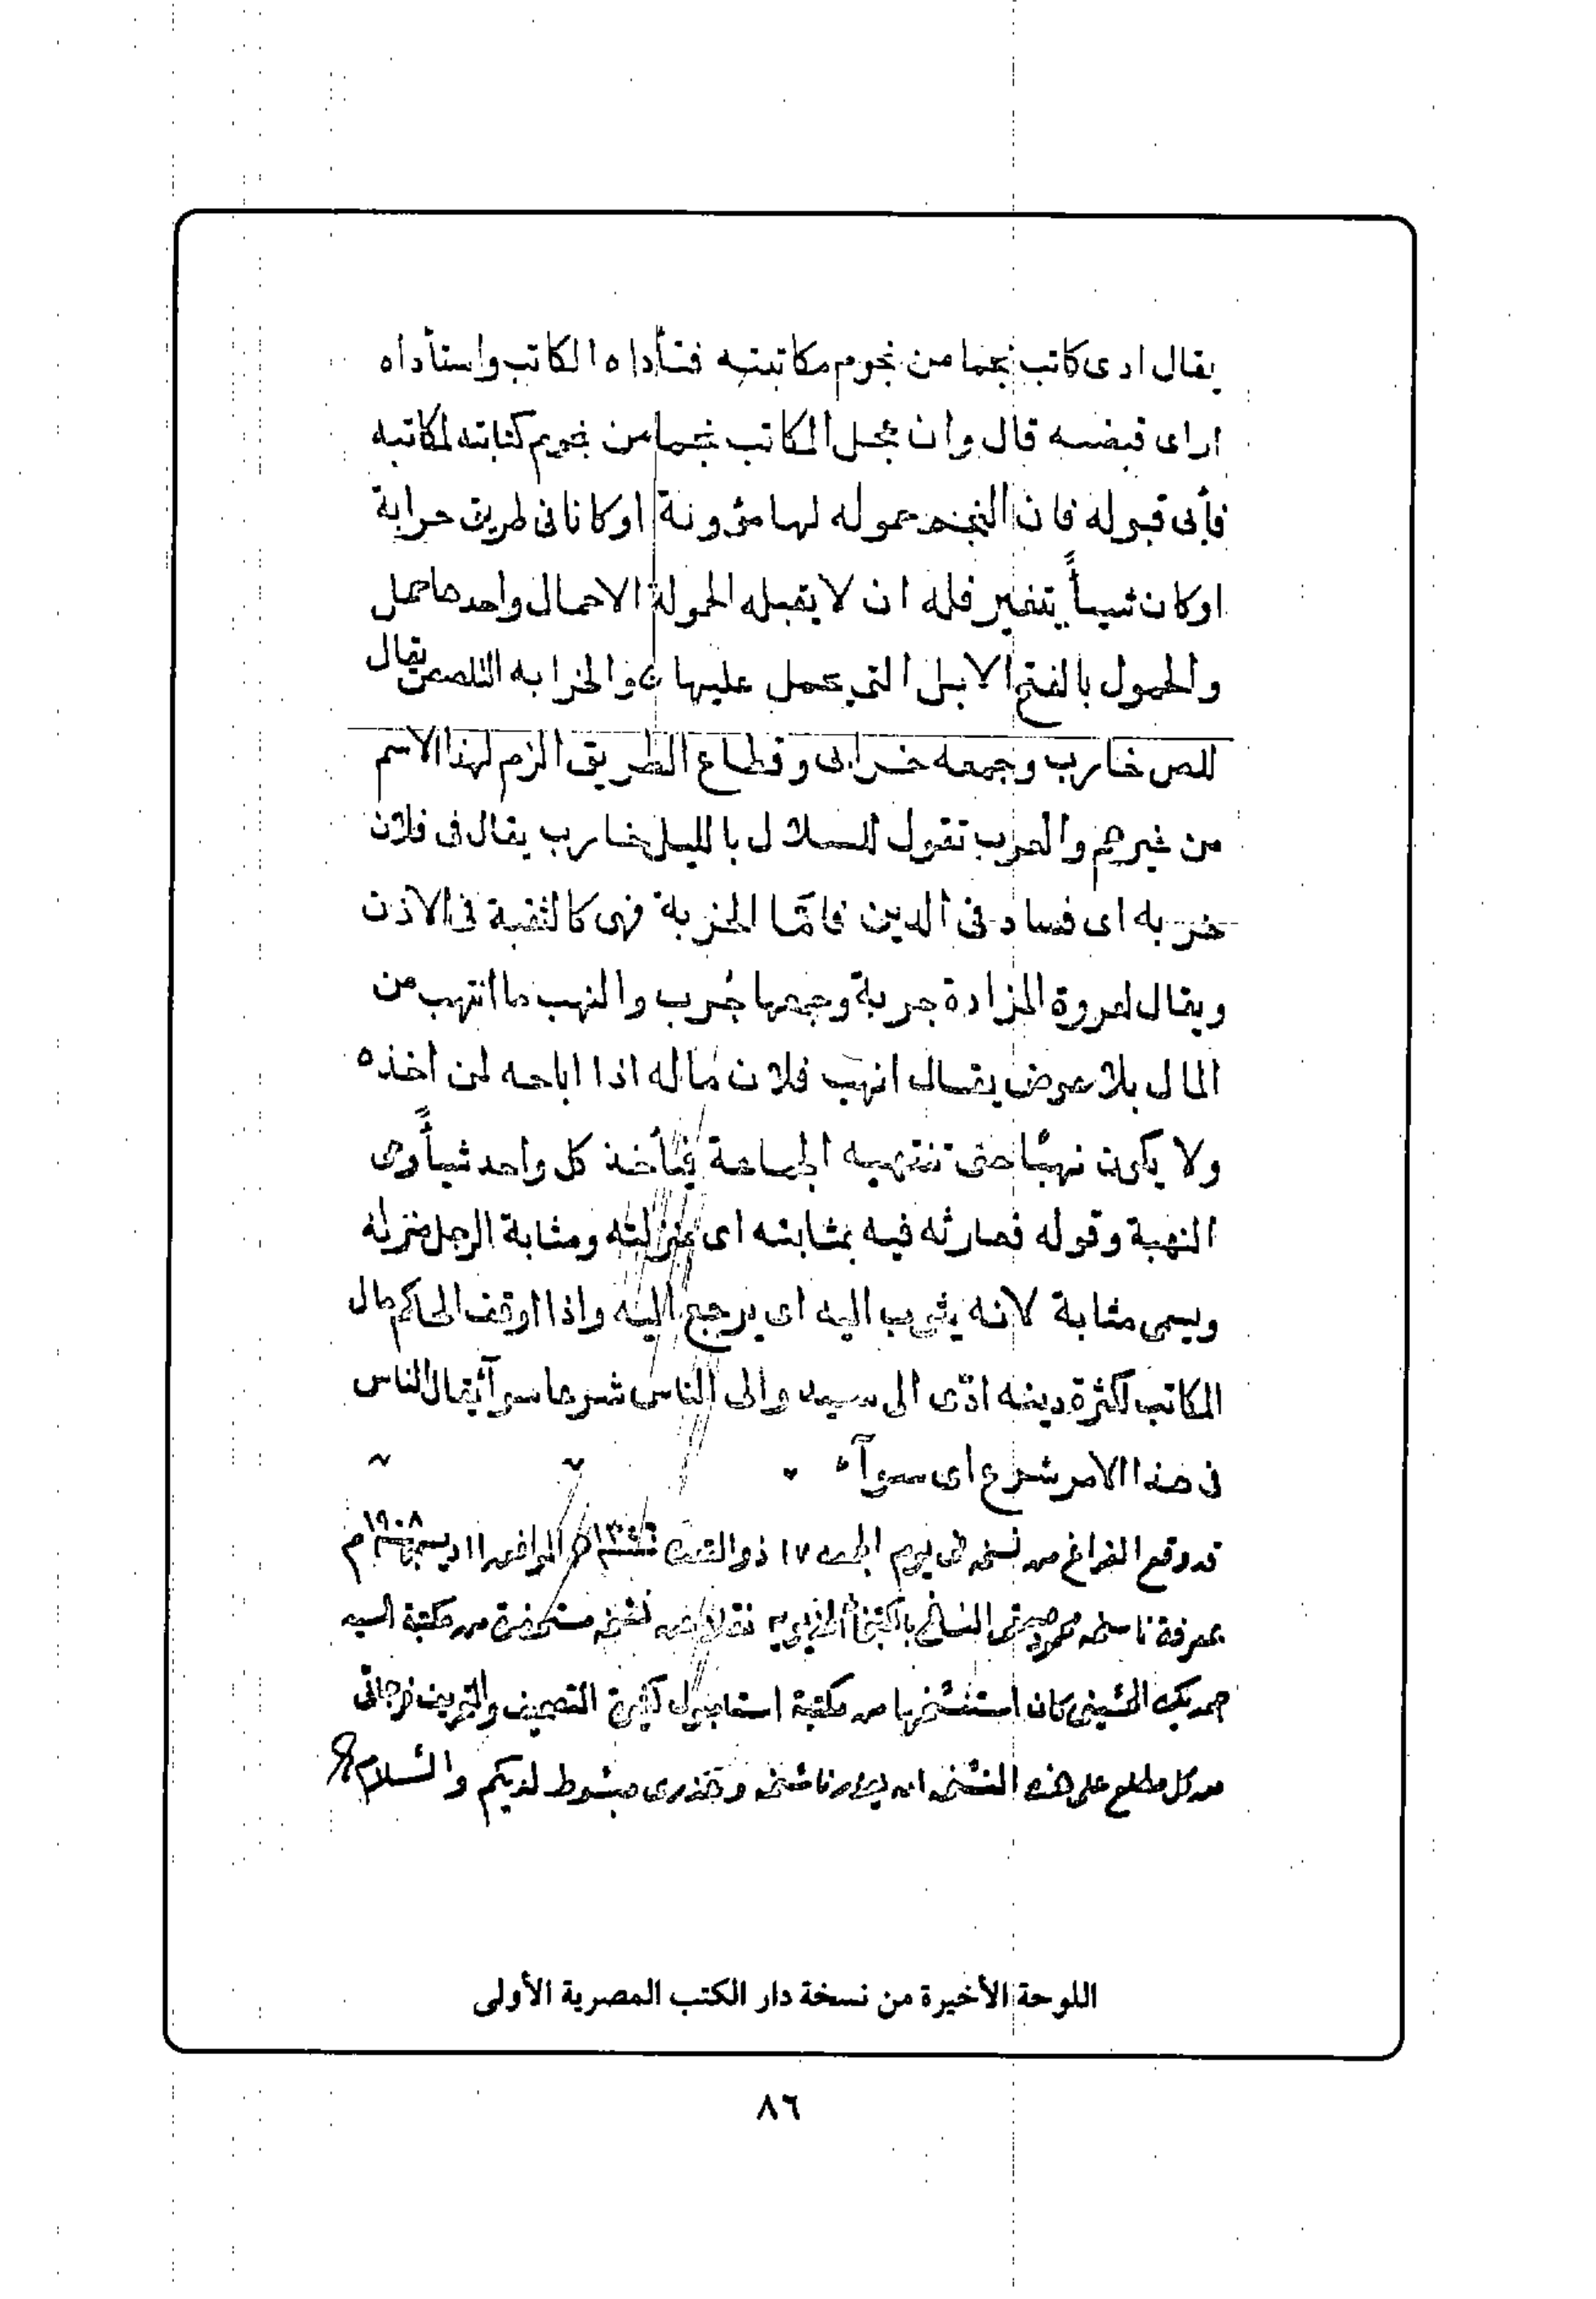 يقال ادى كاتب نجما من نجوم مكاتبته فتأداه الكاتب واستأداه
اراى قبضه قال وان عجل المكاتب نجما من نجوم كتابته لمكاتبه
فأبى قبوله فان النجم حموله لها مؤونة اوكانا فى طريق حرابة
اوكان شيأً يتغير فله ان لا يقبله الحمولة الاحمال واحدها حمل
والحمول بالفتح الابل التى يحمل عليها والخرابه التلصص يقال
للص خارب وجمعه خراب وقطاع الطريق الزم لهذا الاسم
من غيرهم والعرب تقول للسلال بالليل خارب يقال فى فلان
خربه اى فساد فى الدين فامّا الخربة فهى كالثقبة فى الاذن
ويقال لعروة المزادة جربة وجمعها جُرب والنهب ما انتهب من
المال بلا عوض يقال انهب فلان ماله اذا اباحه لمن اخذه
ولا يكون نهبًا حتى تنتهبه الجماعة فيأخذ كل واحد شيأً وهى
النهبة وقوله فصارثه فيه بمثابته اى بمنزلته ومثابة الرجل منزله
ويسمى مثابة لانه يثوب اليه اى يرجع اليه واذا اوقف الحاكم مال
المكاتب لكثرة دينه ادّى الى سيده والى الناس شرعا سوآ يقال الناس
فى هذا الامر شرع اى سوآء
قد وقع الفراغ من نسخه فى يوم الجمعه ١٧ ذو القعدة الموافق ١١ ديسمبر ١٩٠٨م
بمعرفة ناسخه محمود صدقى النساخ بالكتبخانة الخديويه نقلا عن نسخه مستحضرة من مكتبة السيد
احمد بك الحسينى كان استنسخها من مكتبة استامبول كثيرة التصحيف والتحريف فرجائى
من كل مطلع على هذه النسخه ان يعذر ناسخه وعذرى مبسوط لديكم والسلام
اللوحة الأخيرة من نسخة دار الكتب المصرية الأولى
٨٦